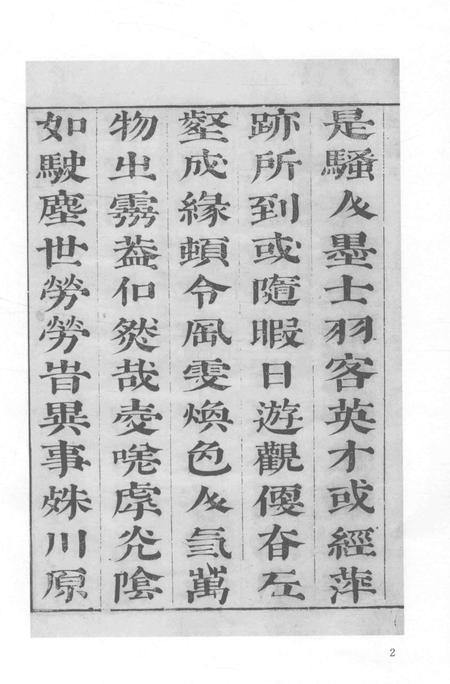 是騷人墨士羽客英才或經萍
跡所到或隨暇日遊觀偃脊丘
壑成緣頓令風雲煥色人氣萬
物出霧益何然哉嗟嗟虖光陰
如駛塵世勞勞昔異事姝川原
2